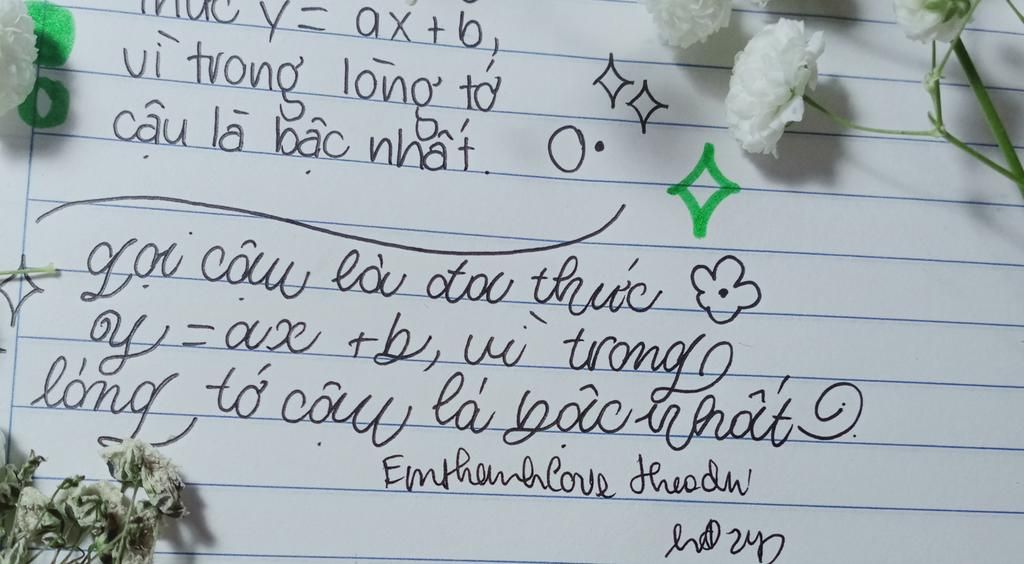 thức y = ax + b,
vì trong lòng tớ
cậu là bậc nhất.
gọi cậu là đa thức
y = ax + b, vì trong
lóng tớ cậu lá bậc nhất
Emthanhlove